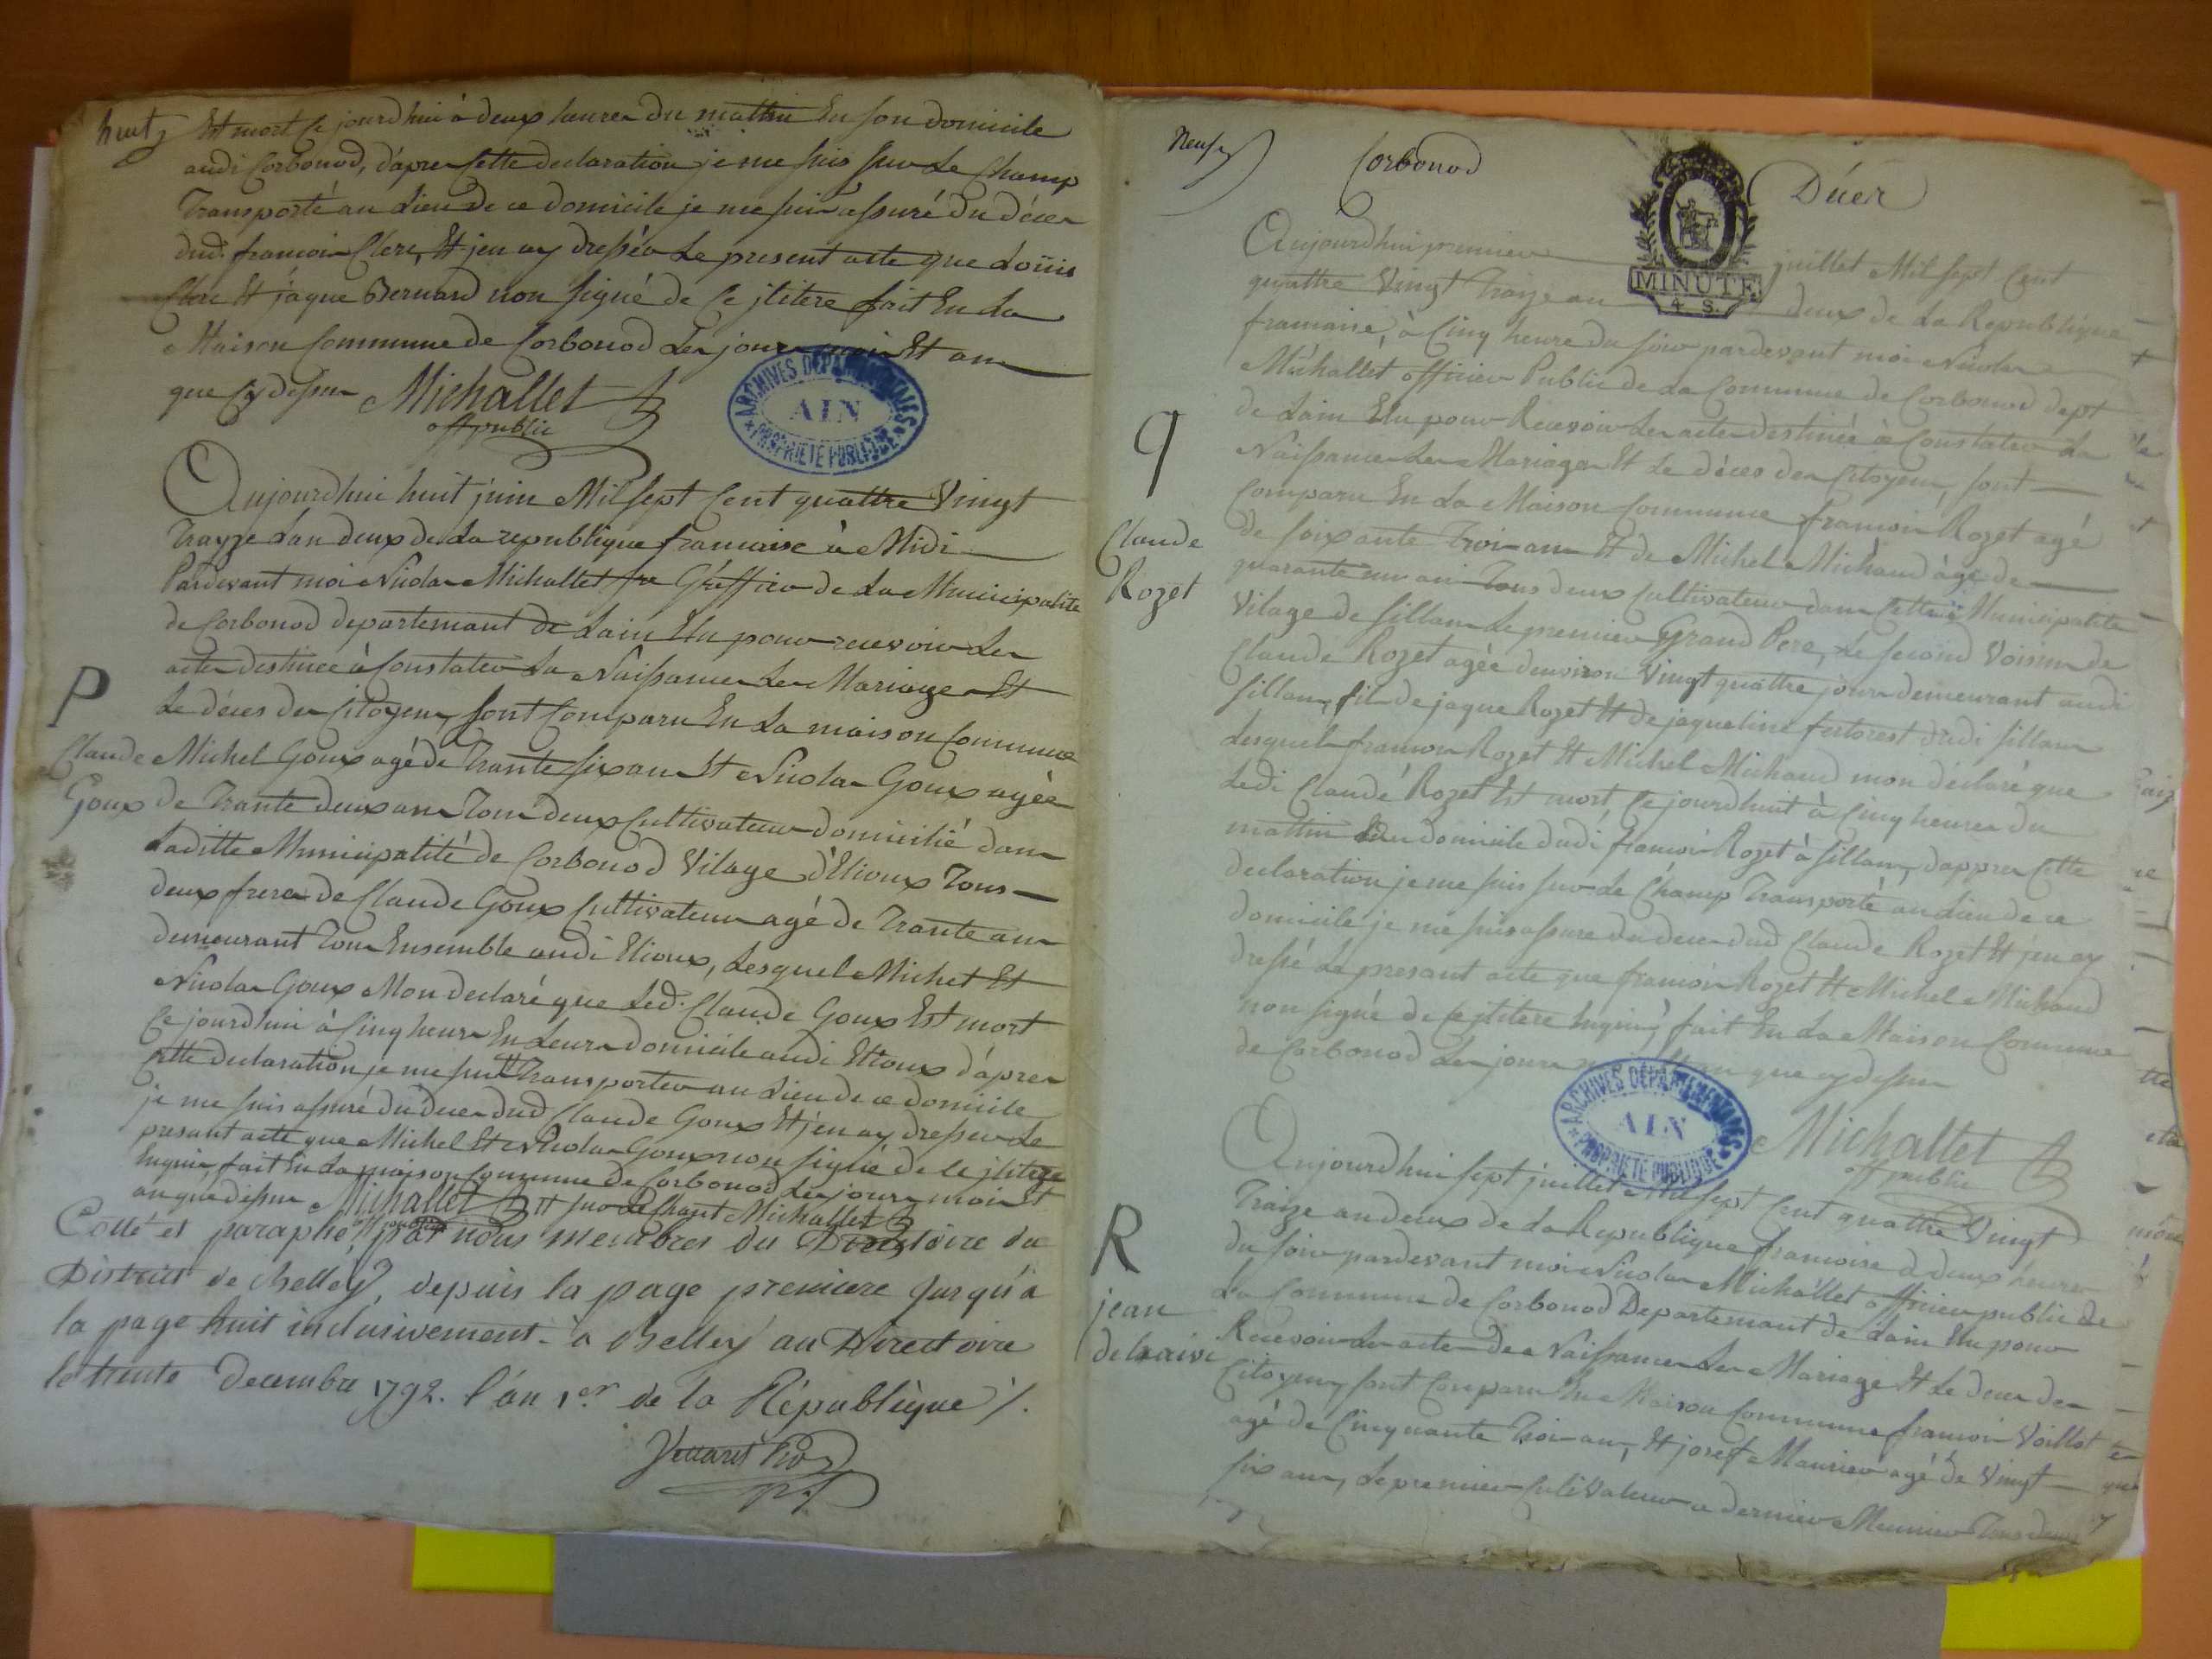 huit
Est mort ce jourdhui à deux heures du mattin En son domicile
audi Corbonod, d'apres Cette declaration je me suis sur Le Champ
Transporté au Lieu De ce domicile je me suis assuré du déces
dud. francois Clerc, Et jen ay dressés Le present acte que Loüis
Clerc Et jaque Bernard non signé de Ce jlitere fait En La
Maison Commune de Corbonod Les jours mois Et an
que Cy dessus Michallet
off public
ARCHIVES DEPARTEMENTALES
AIN
PROPRIETE PUBLIQUE
Aujourdhui huit juin Mil sept Cent quattre Vingt
Trayze Lan deux de La republique francaise à Midi
Pardevant moi Nicolas Michallet Gréffier de La Municipalite
de Corbonod departemant de Lain Elu pour recevoir Les
actes destinee à Constater La Naissance Les Mariages Et
Le déces des Citoyens, sont Comparu En La maison Commune
P
Claude
Goux
Michel Goux agé de Trante six ans Et Nicolas Goux agée
de Trante deux ans Tous deux Cultivateur domicilié dans
Laditte Municipalité de Corbonod Vilage d'Elioux Tous
deux freres de Claude Goux Cultivateur agé de Trante ans
demeurant Tous Ensemble audi Elioux, Lesquel Michel Et
Nicolas Goux Mon declaré que Led. Claude Goux Est mort
Ce jourdhui à Cinq heurs En Leurs domicile audi Elioux d'apres
Cette declaration je me suis Transporter au Lieu de ce domicile
je me suis assuré du deces dud Claude Goux Et j'en ay dresser Le
present acte que Michel Et Nicolas Goux non signé de Ce jlitere
fait En La maison Commune de Corbonod Les jours mois Et
an que dessus Michallet Michallet
off public
Cotté et paraphé par nous membres du Directoire du
District de Belley, depuis la page premiere jusqu'à
la page huit inclusivement. a Belley au Directoire
le trente Decembre 1792. l'an 1.er de la République /.
Neuf
Corbonod
Déces
MINUTE
4 S.
Aujourdhui premier juillet Mil sept Cent
quattre Vingt Traize an deux de La Republique
francaise, à Cinq heure du soir pardevant moi Nicolas
Michallet officier Public de La Commune de Corbonod dept
de Lain Elu pour Recevoir Les actes destinée à Constater La
Naissance Les Mariages Et Le déces des Citoyens, sont
Comparu En La Maison Commune francois Rozet agé
de soixante Trois ans Et de Michel Michaud àgé de
quarante un ans Tous deux Cultivateur dans Cette Municipalite
Vilage de sillans Le premier Grand Pere, Le second Voisin de
Claude Rozet agée denviron Vingt quattre jours demeurant audi
sillans, fils de jaque Rozet Et de jaqueline dudi sillans
Lesquels francois Rozet Et Michel Michaud mon déclaré que
Ledi Claude Rozet Est mort Ce jourdhuit à Cinq heures du
mattin domicile dudi francois Rozet à sillans, dappres Cette
declaration je me suis sur Le Champ Transporté au Lieu de ce
domicile je me suis assure du deces dud Claude Rozet Et jen ay
dressé Le presant acte que francois Rozet Et Michel Michaud
non signé de Ce jlitere fait En La Maison Commune
de Corbonod Les jours que cy dessus
9
Claude
Rozet
ARCHIVES DEPARTEMENTALES
AIN
PROPRIETE PUBLIQUE
Michallet
off public
Aujourdhui sept juillet Mil sept Cent quattre Vingt
Traize an deux de La Republique francoise à deux heures
du soir pardevant moi Nicolas Michallet officier public de
La Commune de Corbonod Departemant de Lain Elu pour
Recevoir Les actes de Naissance Les Mariage Et Le deces des
Citoyens, sont Comparu En Maison Commune francois Voillot
agé de Cinquante Trois ans, Et josef Meunier agé de Vingt
six ans, Le premier Cultivateur dernier Meunier Tous deux
R
jean